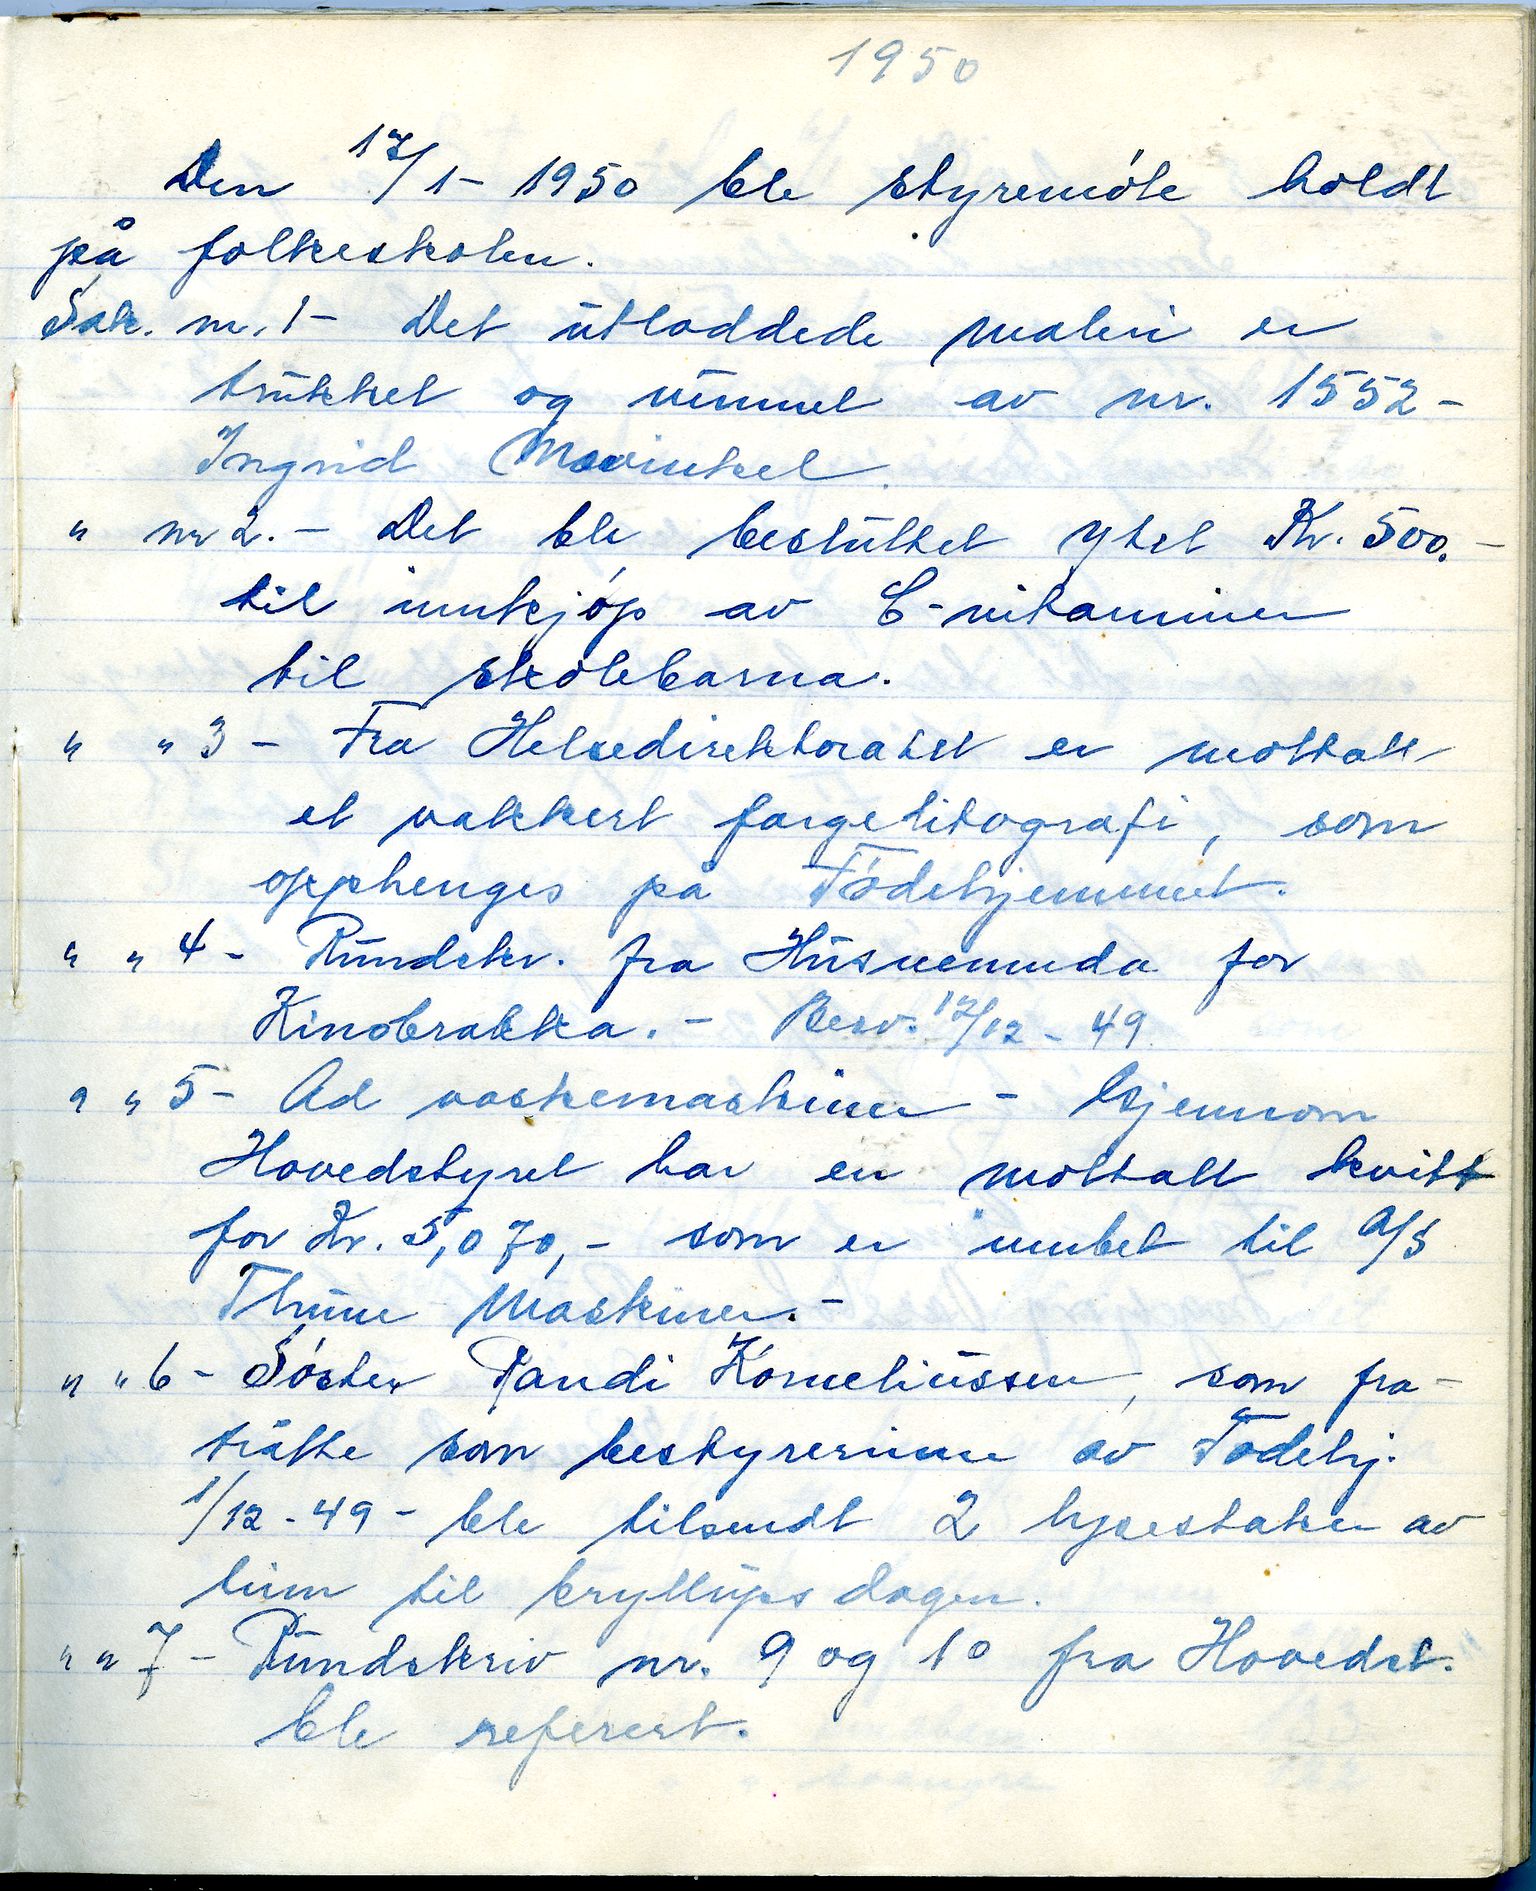 1950
Den 17/1- 1950 ble styremöte holdt
på folkeskolen.
Sak. nr. 1- Det utloddede maleri er
trukket og vunnet av nr. 1552-
Ingrid Mowinkel.
" nr 2. - Det ble besluttet ytet Kr. 500.-
til innkjóp av C-vitaminer
til skolebarna.
" " 3 - Fra Helsedirektoratet er mottatt
et vakkert fargelitografi, som
opphenges på Födehjemmet.
" " 4 - Rundskr. fra Husnemnda for
Kinobrakka. - Besv. 17/12 - 49
" " 5 - Ad vaskemaskiner - Gjennom
Hovedstyret har en mottatt kvitt
for Kr. 5,070,- som er innbet til A/S
Thune Maskiner. -
" " 6 - Söster Randi Korneliussen, som fra-
trätte som bestyrerinne av Fodehj.
1/12 - 49 - ble tilsendt 2 lysestaker av
tinn til bryllupsdagen.
" " 7 - Rundskriv nr. 9 og 10 fra Hovedst.
ble referert.